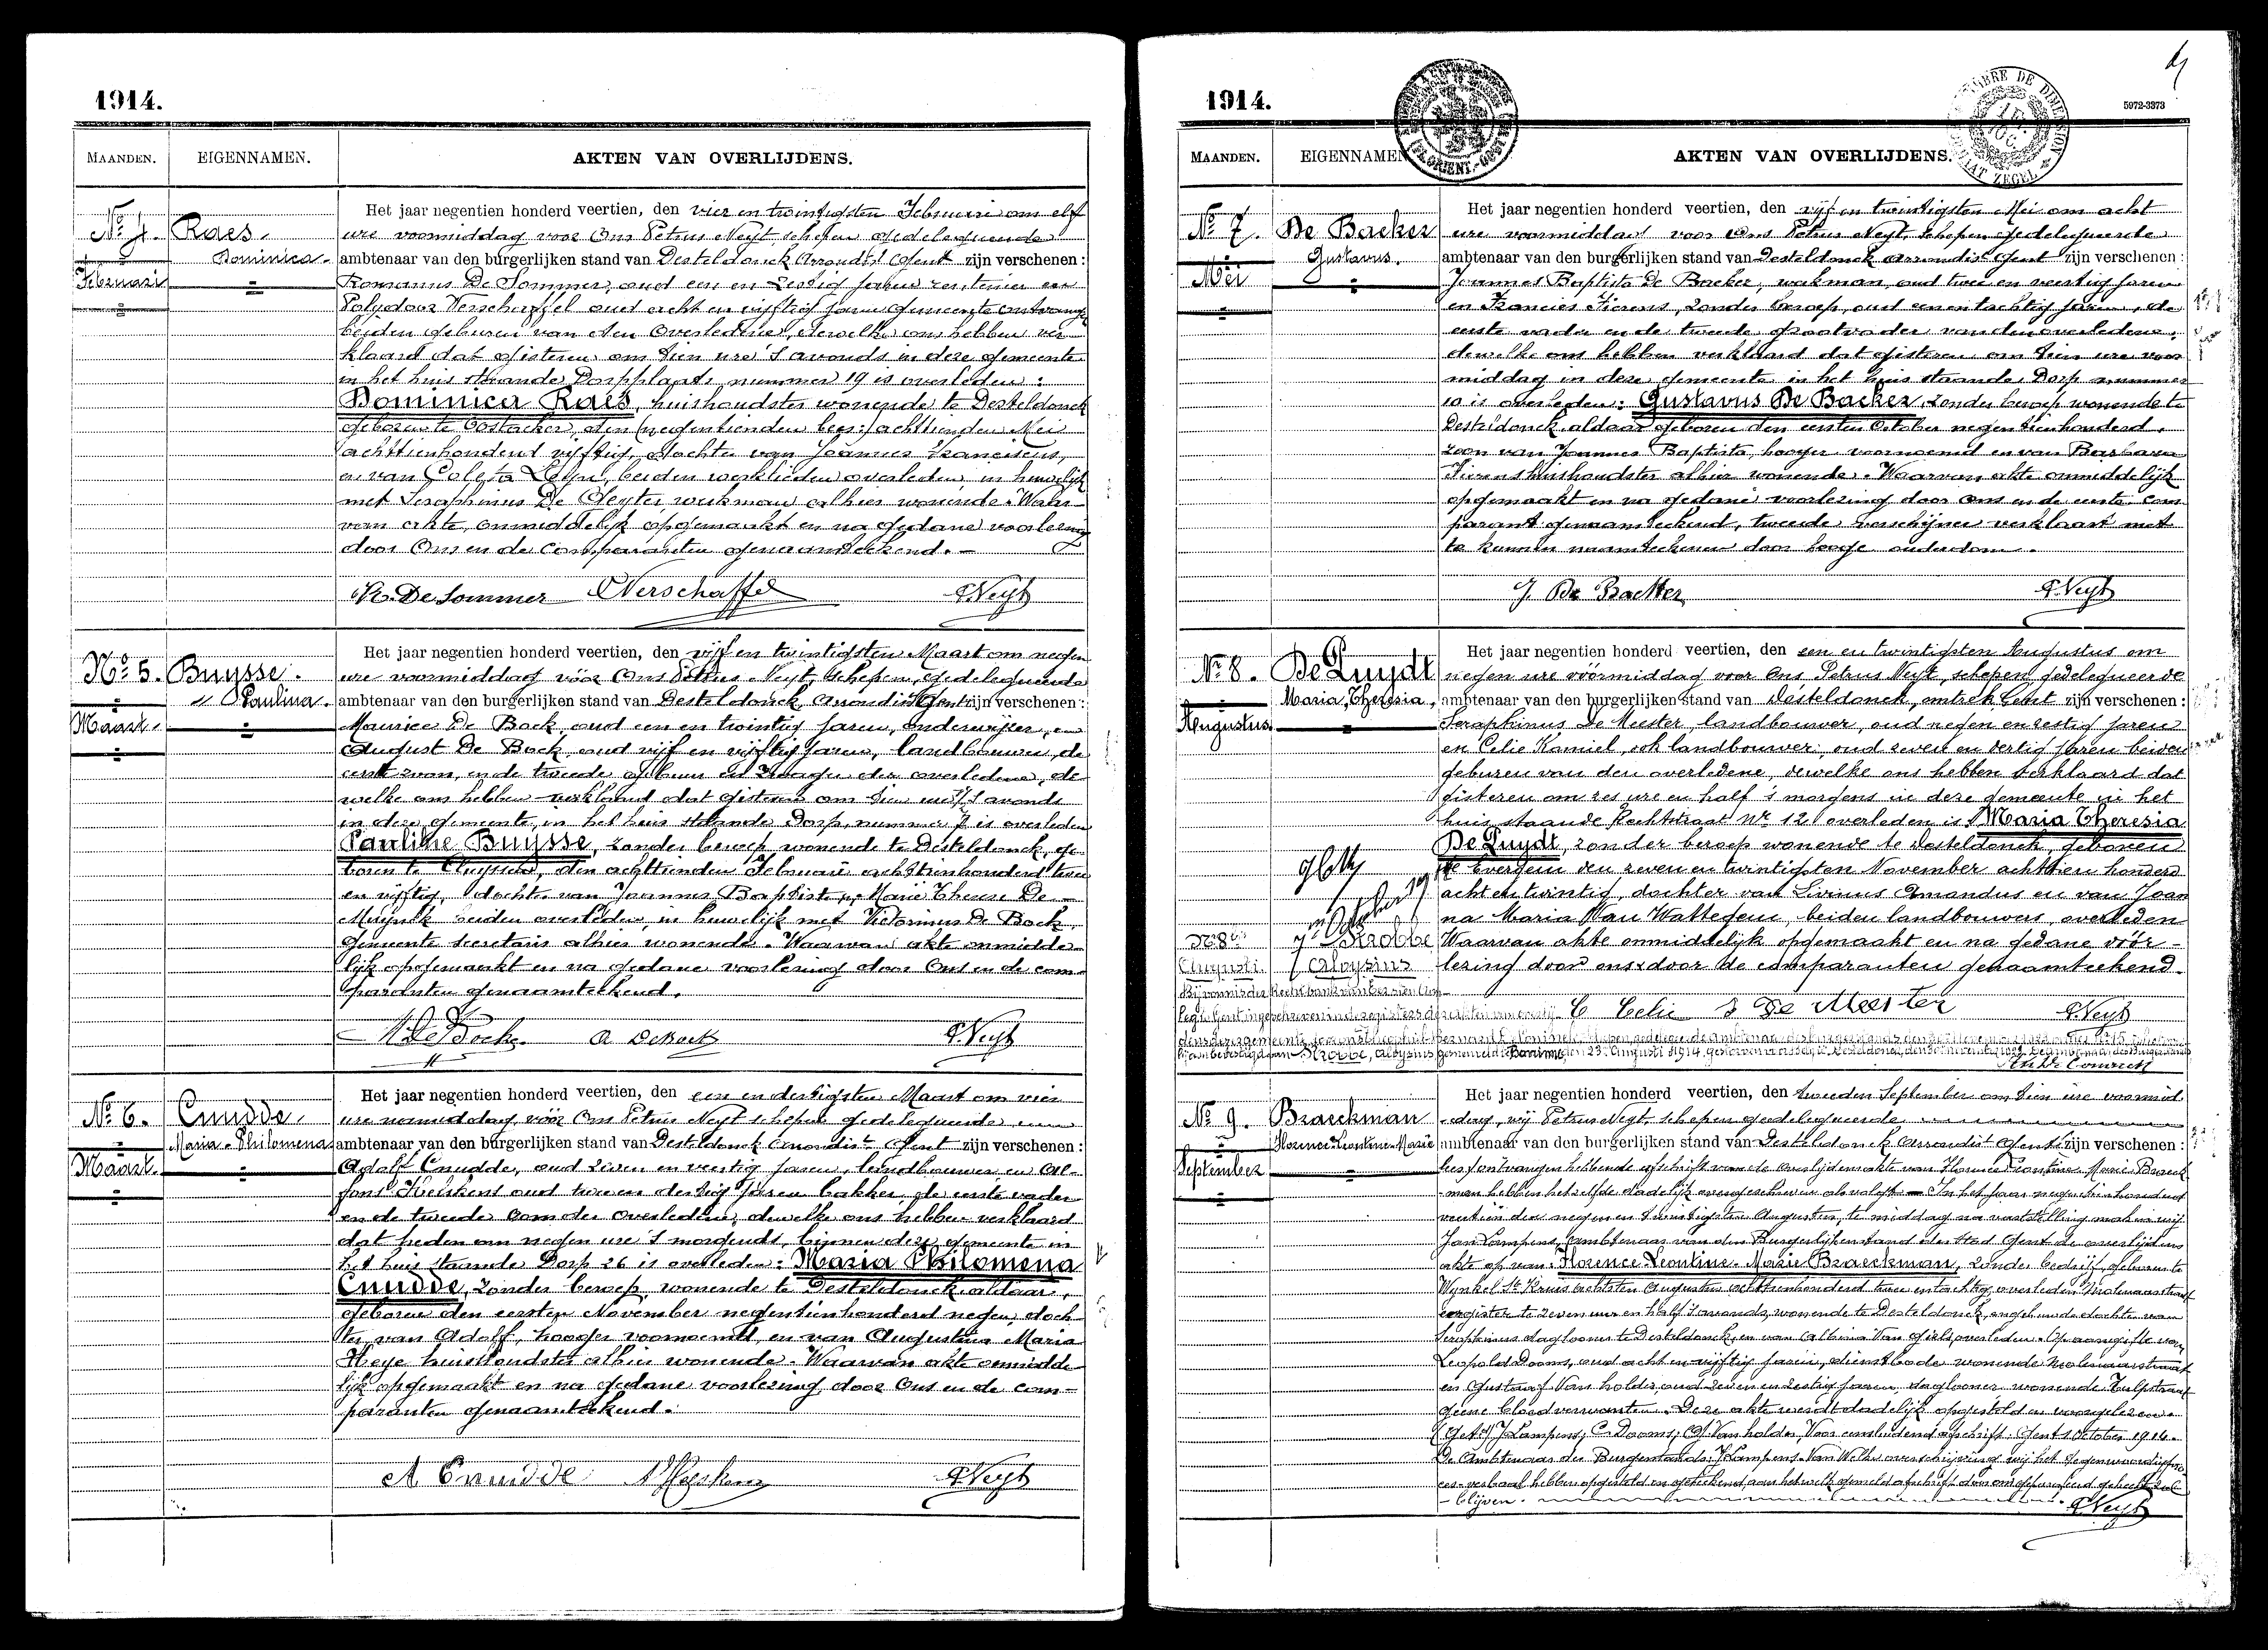 1914.
MAANDEN. EIGENNAMEN. AKTEN VAN OVERLIJDENS.
No 4. Raes. Dominica. Februari
Het jaar negentien honderd veertien, den vier en twintigsten Februari om elf
ure voormiddag voor Ons Petrus Neyt, schepen gedelegueerde
ambtenaar van den burgerlijken stand van Desteldonck Arrondist Gent zijn verschenen:
Romanus De Sommer, oud een en zestig jaren rentenier en
Polydoor Verschaffel oud acht en vijftig jaren gemeente ontvanger
beiden geburen van den overledene, dewelke ons hebben ver-
klaard dat gisteren om tien ure 's avonds in deze gemeente
in het huis staande Dorpplaats nummer 19 is overleden:
Dominica Raes, huishoudster wonende te Desteldonck
geboren te Oostacker, den (negentienden lees:) achttienden Mei
achttienhonderd vijftig, dochter van Joannes Franciscus,
en van Coleta , beiden werklieden overleden, in huwelijk
met Seraphinus De Cleyter, werkman alhier wonende. Waar-
van akte onmiddelijk opgemaakt en na gedane voorlezing
door Ons en de comparanten genaamteekend.
R. De Sommer Verschaffel P. Neyt
No 5. Buysse. Paulina. Maart.
Het jaar negentien honderd veertien, den vijf en twintigsten Maart om negen
ure voormiddag vóór Ons Petrus Neyt, schepen, gedelegueerde
ambtenaar van den burgerlijken stand van Desteldonck, Arrondist Gent zijn verschenen:
Maurice De Bock, oud een en twintig jaren, onderwijzer, en
August De Bock, oud vijf en vijftig jaren, landbouwer, de
eerste zoon, en de tweede gebuur en zwager der overledene, de-
welke ons hebben verklaard dat gisteren om tien ure 's avonds
in deze gemeente, in het huis staande Dorp, nummer 7 is overleden
Pauline Buysse, zonder beroep wonende te Desteldonck, ge-
boren te Cluysen, den achttienden Februari achttienhonderd twee
en vijftig, dochter van Joannes Baptist en Marie Therese De
Muynck beiden overleden, in huwelijk met Victorinus De Bock,
gemeente secretaris alhier wonende. Waarvan akte onmidde-
lijk opgemaakt en na gedane voorlezing door Ons en de com-
paranten genaamteekend.
M. De Bock A De Bock P. Neyt
No 6. Cnudde. Maria-Philomena Maart.
Het jaar negentien honderd veertien, den een en dertigsten Maart om vier
ure namiddag, vóór Ons Petrus Neyt schepen gedelegueerde
ambtenaar van den burgerlijken stand van Desteldonck Arrondist Gent zijn verschenen:
Adolf Cnudde, oud zeven en veertig jaren, landbouwer, en Al-
fons oud twee en dertig jaren bakker, de eerste vader
en de tweede oom der overledene, dewelke ons hebben verklaard
dat heden om negen ure 's morgends, binnen deze gemeente in
het huis staande Dorp 26 is overleden: Maria Philomena
Cnudde, zonder beroep, wonende te Desteldonck aldaar,
geboren den eersten November negentienhonderd negen, doch-
ter van Adolf, hooger voornoemd, en van Augustina Maria
Heye huishoudster alhier wonende. Waarvan akte onmidde-
lijk opgemaakt en na gedane voorlezing door Ons en de com-
paranten genaamteekend.
A Cnudde P. Neyt
1914.
5972-3373
MAANDEN. EIGENNAMEN AKTEN VAN OVERLIJDENS.
No 7. De Backer Gustavus. Mei
Het jaar negentien honderd veertien, den vijf en twintigsten Mei om acht
ure voormiddag voor Ons Petrus Neyt, schepen gedelegueerde
ambtenaar van den burgerlijken stand van Desteldonck arrondist Gent zijn verschenen:
Joannes Baptista De Backer, werkman, oud twee en veertig jaren
en Francies Fierens, zonder beroep, oud een en tachtig jaren, de
eerste vader en de tweede grootvader van den overledene,
dewelke ons hebben verklaard dat gisteren om tien ure voor-
middag in deze gemeente in het huis staande Dorp nummer
10 is overleden: Gustavus De Backer, zonder beroep wonende te
Desteldonck aldaar geboren den eersten October negentienhonderd,
zoon van Joannes Baptista, hooger voornoemd en van Barbara
Fierens huishoudster alhier wonende. Waarvan akte onmiddelijk
opgemaakt en na gedane voorlezing door Ons en de eerste com-
parant genaamteekend, tweede verschijner verklaart niet
te kunnen naamteekenen door hooge ouderdom.
J. De Backer P. Neyt
No 8. De Luydt Maria, Theresia, Augustus.
Het jaar negentien honderd veertien, den een en twintigsten Augustus om
negen ure vóórmiddag voor Ons Petrus Neyt, schepen gedelegueerde
ambtenaar van den burgerlijken stand van Desteldonck, Gent zijn verschenen:
Seraphinus De Meester, landbouwer, oud negen en zestig jaren
en Celie Kamiel, ook landbouwer, oud zeven en dertig jaren beiden
geburen van den overledene, dewelke ons hebben verklaard dat
gisteren om zes ure en half 's morgens in deze gemeente in het
huis staande Rechtstraat Nr 12 overleden is Maria Theresia
De Luydt, zonder beroep wonende te Desteldonck, geboren
te Evergem den zeven en twintigsten November achttien honderd
acht en twintig, dochter van Livinus Amandus en van Joan
na Maria Van Wattegem, beiden landbouwers, overleden
Waarvan akte onmiddelijk opgemaakt en na gedane vóór-
lezing door ons door de comparanten genaamteekend
No 8bis Strobbe Aloysius Augusti
C Celie S De Meester P. Neyt
No 9. Braeckman Florence-Leontine-Marie September
Het jaar negentien honderd veertien, den tweeden September om tien ure voormid-
dag, wij Petrus Neyt, schepen gedelegueerde
ambtenaar van den burgerlijken stand van Desteldonck arrondist Gent zijn verschenen:
lees: ontvangen hebbende afschrift van de overlijdensakte van Florence Leontine Marie Braeck-
man hebben hetzelfde dadelijk overgeschreven als volgt: In het jaar negentienhonderd
veertien den negen en twintigsten Augustus, te middag na vaststelling maken wij
Jan Lampens, ambtenaar van den Burgerlijken stand der stad Gent de overlijdens-
akte op van: Florence-Leontine-Marie Braeckman, zonder bedrijf, geboren te
Wynkel St Kruis achtsten Augustus achttienhonderd twee en tachtig, overleden Molenaarstraat
eergister te zeven uur en half 's avonds, wonende te Desteldonck, ongehuwde dochter van
Seraphinus daglooner te Desteldonck, en van Albina Van overleden. Op aangifte van
Leopold Dooms, oud acht en vijftig jaren, dienstbode wonende Molenaarstraat
en Gustaaf Van holder, oud zeven en zestig jaren, daglooner wonende Tulpstraat
geene bloedverwanten. Deze akte werdt dadelijk opgesteld en voorgelezen.
(Get.) J Lampens; C. Dooms; G. Van holder, Voor eensluidend afschrift. Gent 1 October 1914.
De Ambtenaar des Burgerstands: J Lampens. Van Welke overschrijving wij het tegenwoordig pro-
ces-verbaal hebben opgesteld en geteekend, aan hetwelk gemeld afschrift door ons geparafeerd gehecht zal
blijven.
P. Neyt